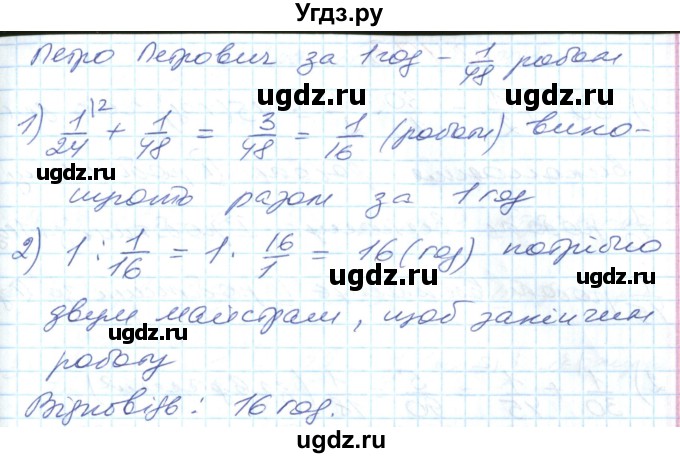 Угдз.ру
Петро Петрович за 1 год - 1/48 роботи
ugdz.ru ugdz.ru
1) 1/24 |2 + 1/48 = 3/48 = 1/16 (роботи) вико-
ugdz.ru ugdz.ru
нують разом за 1 год
2) 1 : 1/16 = 1 · 16/1 = 16 (год) потрібно
ugdz.ru
двум майстрам, щоб закінчити
ugdz.ru ugdz.ru
роботу
Відповідь: 16 год.
ugdz.ru ugdz.ru
ugdz.ru